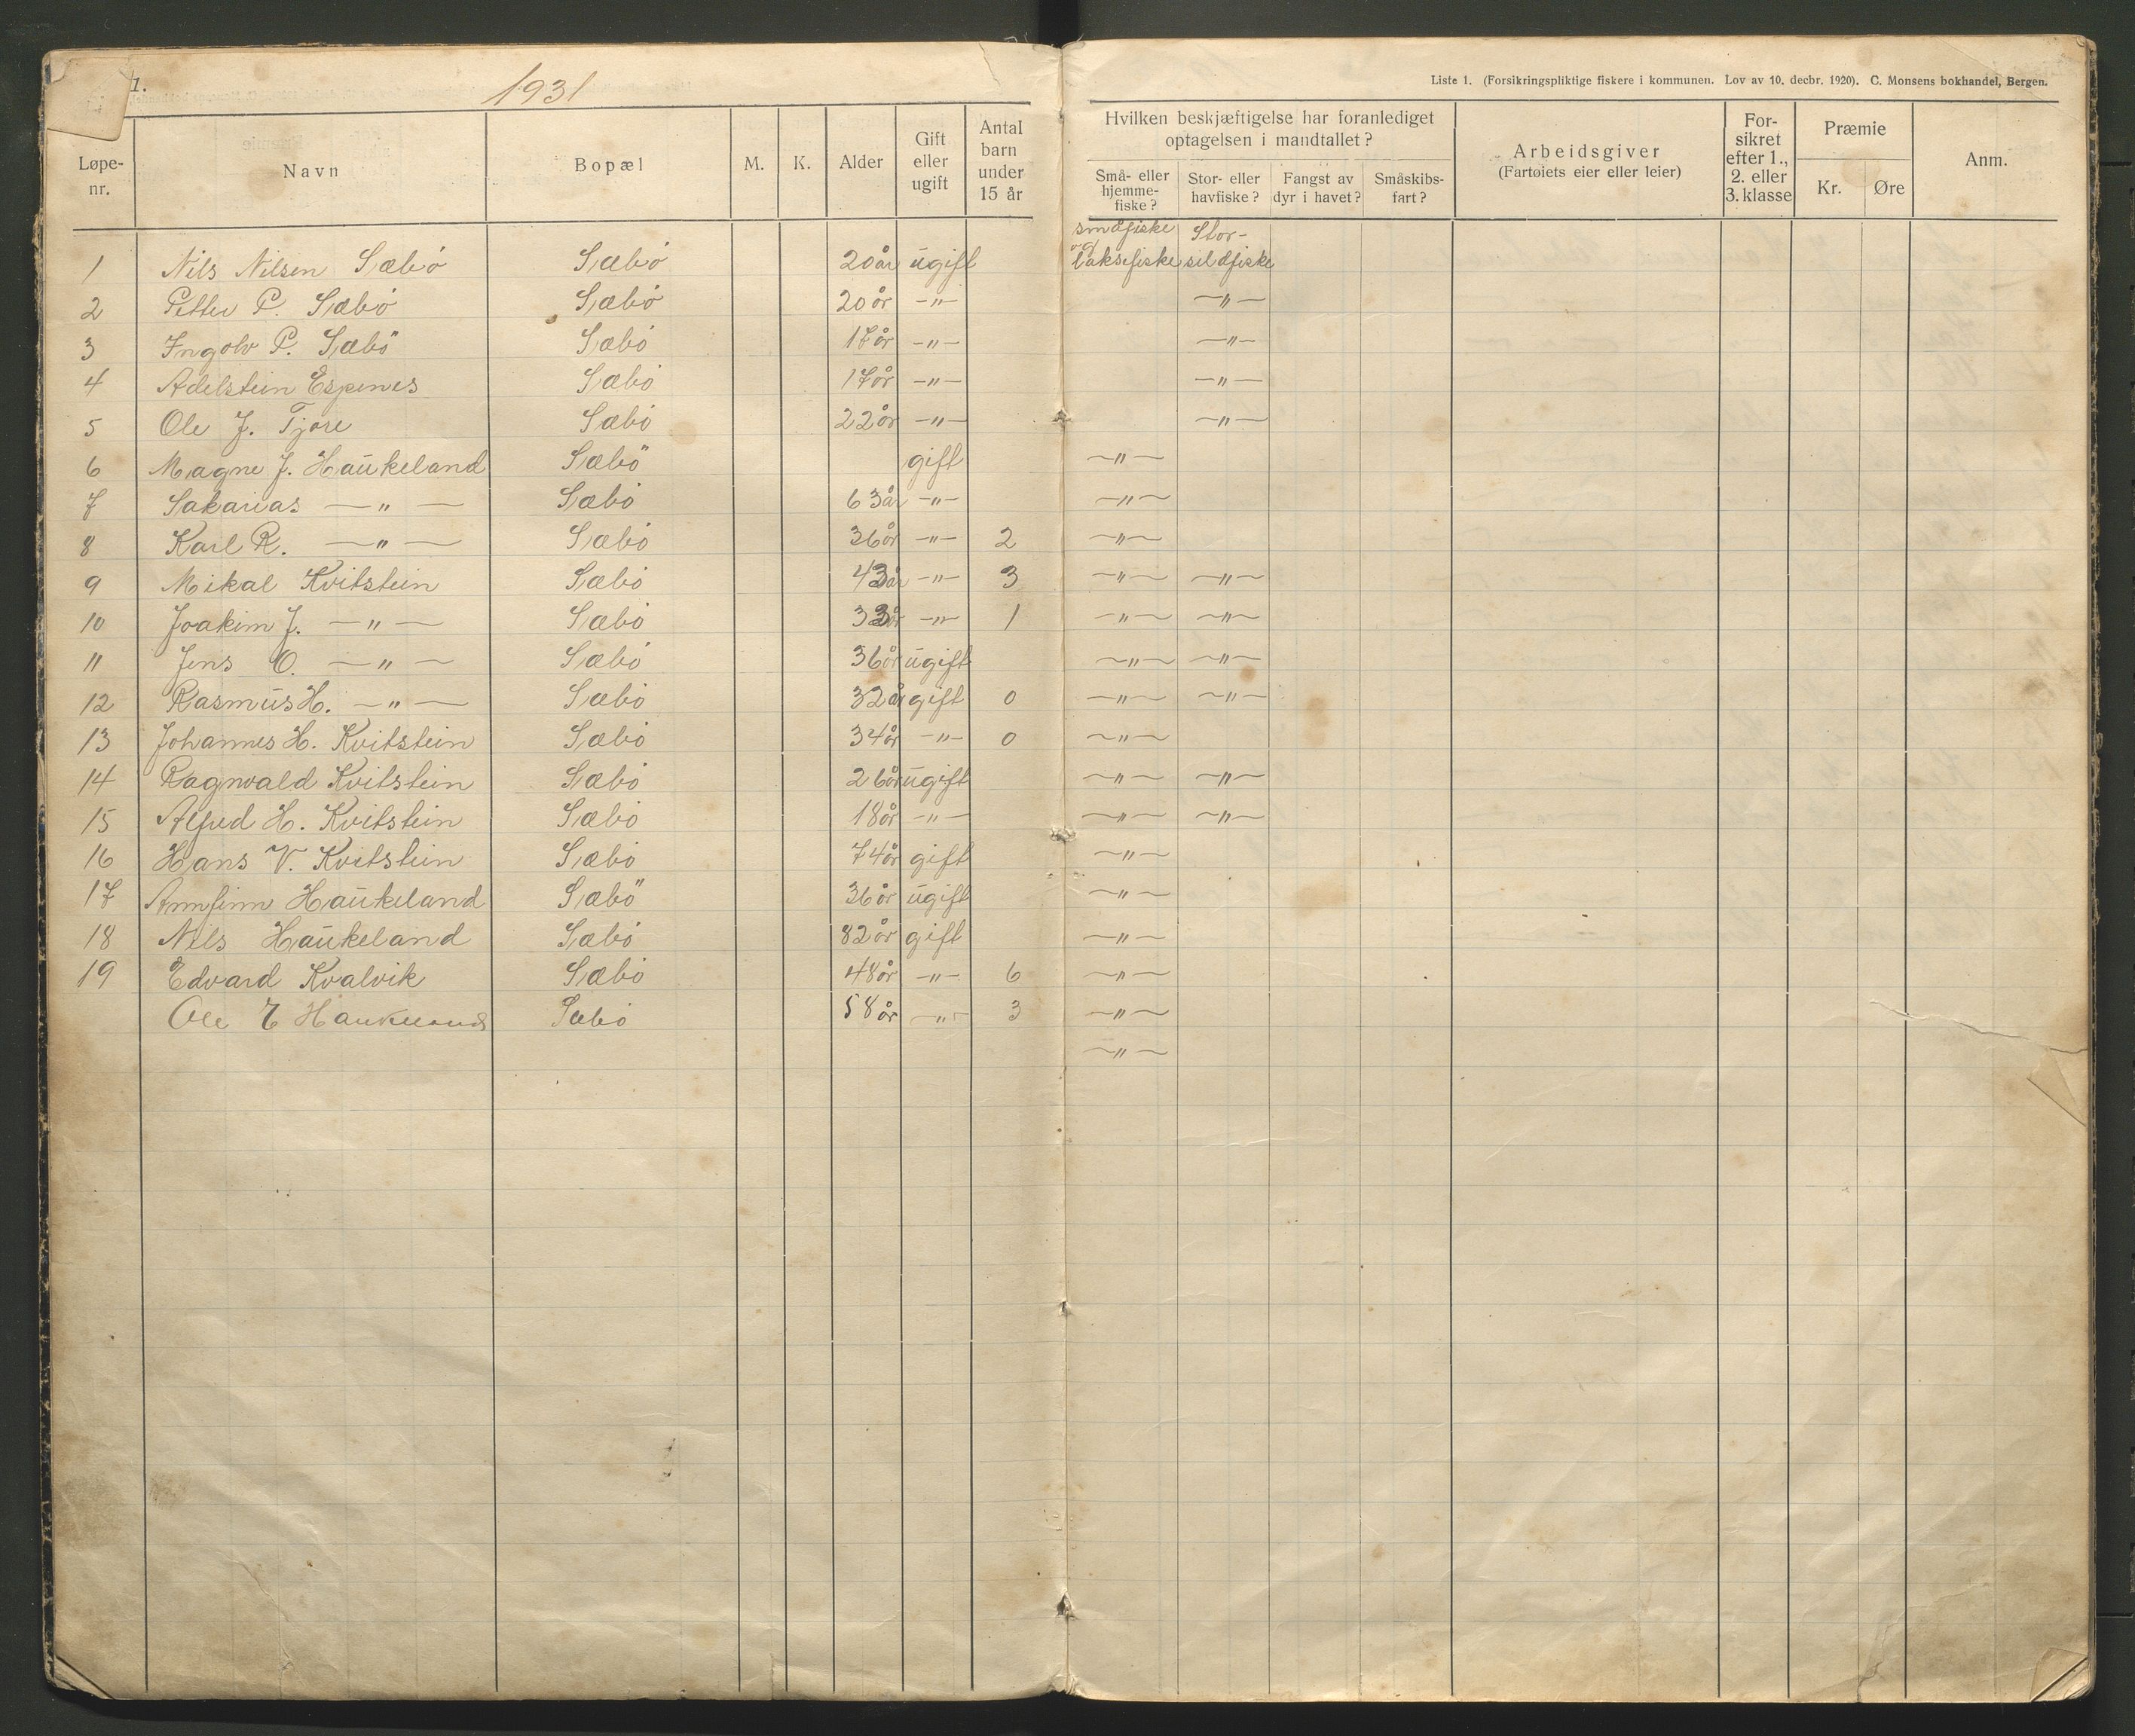 1.
1931
Liste 1. (Forsikringspliktige fiskere i kommunen. Lov av 10. decbr. 1920). C. Monsens bokhandel, Bergen.
Løpe-nr. Navn Bopæl M. K. Alder Gift eller ugift Antal barn under 15 år Hvilken beskjæftigelse har foranlediget optagelsen i mandtallet? Små- eller hjemme-fiske? Stor- eller havfiske? Fangst av dyr i havet? Småskibs-fart? Arbeidsgiver (Fartøiets eier eller leier) For-sikret efter 1., 2. eller 3. klasse Præmie Kr. Øre Anm.
1 Nils Nilsen Sæbö Sæbö 20 år ugift småfiske og laksefiske Stor-sildfiske
2 Petter P. Sæbö Sæbö 20 år —"— —"—
3 Ingolv P. Sæbö Sæbö 17 år —"— —"—
4 Adelstein Espenes Sæbö 17 år —"— —"—
5 Ole J. Tjore Sæbö 22 år —"— —"—
6 Magne J. Haukeland Sæbö gift —"—
7 Sakarias —"— Sæbö 63 år —"— —"—
8 Karl R. —"— Sæbö 36 år —"— 2 —"—
9 Mikal Kvitstein Sæbö 43 år —"— 3 —"— —"—
10 Joakim J. —"— Sæbö 33 år —"— 1 —"— —"—
11 Jens O. —"— Sæbö 36 år ugift —"— —"—
12 Rasmus H. —"— Sæbö 32 år gift 0 —"— —"—
13 Johannes H. Kvitstein Sæbö 34 år —"— 0 —"—
14 Ragnvald Kvitstein Sæbö 26 år ugift —"— —"—
15 Alfred H. Kvitstein Sæbö 18 år —"— —"— —"—
16 Hans V. Kvitstein Sæbö 74 år gift —"—
17 Arnfinn Haukeland Sæbö 36 år ugift —"—
18 Nils Haukeland Sæbö 82 år gift —"—
19 Edvard Kvalvik Sæbö 48 år —"— 6 —"—
Ole E Haukeland Sæbö 58 år —"— 3 —"—
—"—